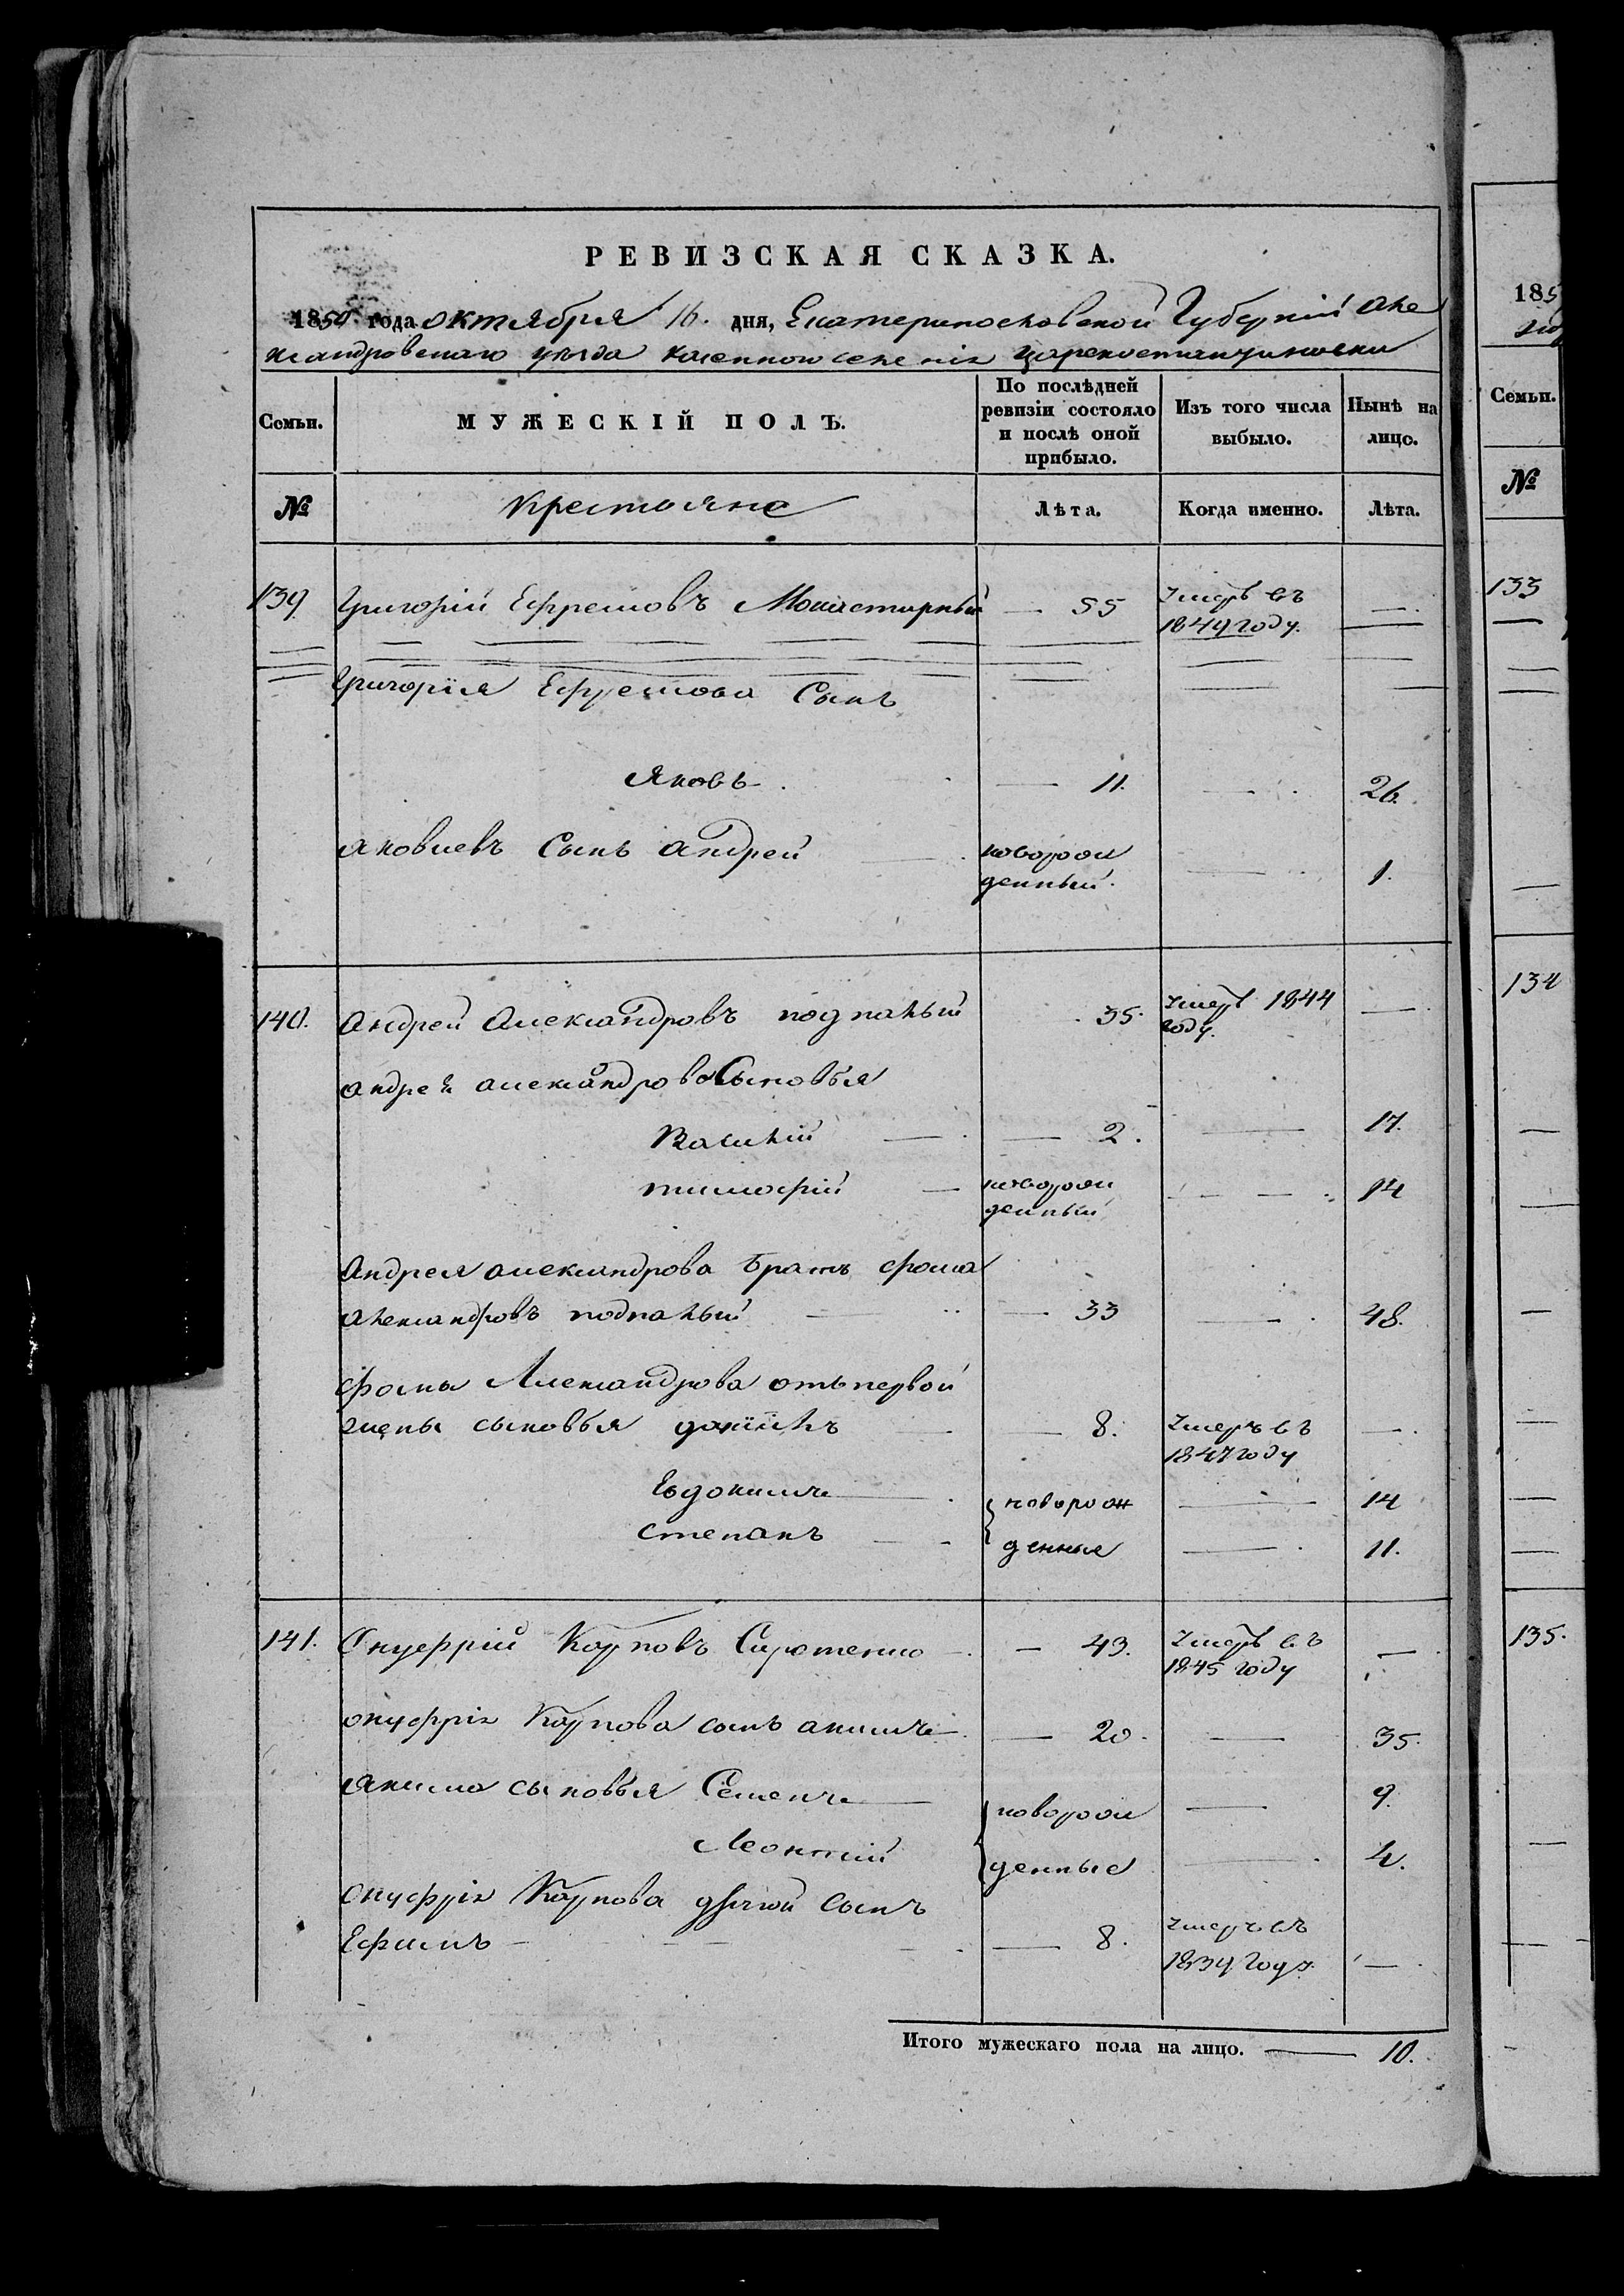 РЕВИЗСКАЯ СКАЗКА.
1850 года октября 16. дня, Екатеринославской Губерніи Але
ксандровскаго уѣзда казеннаго селенія Цареконстантиновки
Семьи. МУЖЕСКІЙ ПОЛЪ. По послѣдней ревизіи состояло и послѣ оной прибыло. Изъ того числа выбыло. Нынѣ на лицо.
№ Крестьяне Лѣта. Когда именно. Лѣта.
139 Григорій Ефремовъ Монастирный — 55 умеръ въ 1849 году. —
Григорія Ефремова Сынъ
Яковъ — 11. — 26.
Яковлевъ Сынъ Андрей — новорож
денный. — 1.
140. Андрей Александровъ подпалый 35. умеръ 1844 году. —
Андрея Александрова Сыновья
Василій — 2. — 17.
тимофій — новорож
денный — 14
Андрея Александрова братъ фома
Александровъ подпалый — 33 — 48.
фомы Александрова отъ первой
жены сыновья даніилъ — 8. умеръ въ 1847 году —
Евдокимъ — новорож — 14
степанъ — денные — 11.
141. Онуфрій Карповъ Сиротенко — 43. умеръ въ 1845 году —
онуфрія Карпова сынъ акимъ — 20. — 35.
Якима сыновья Семенъ — новорож — 9.
Леонтій денные — 4.
онуфрія Карпова другой сынъ
Ефимъ — 8. умеръ въ
1839 году. —
Итого мужескаго пола на лицо. — 10.
185
Семьи.
№
133
134
135.